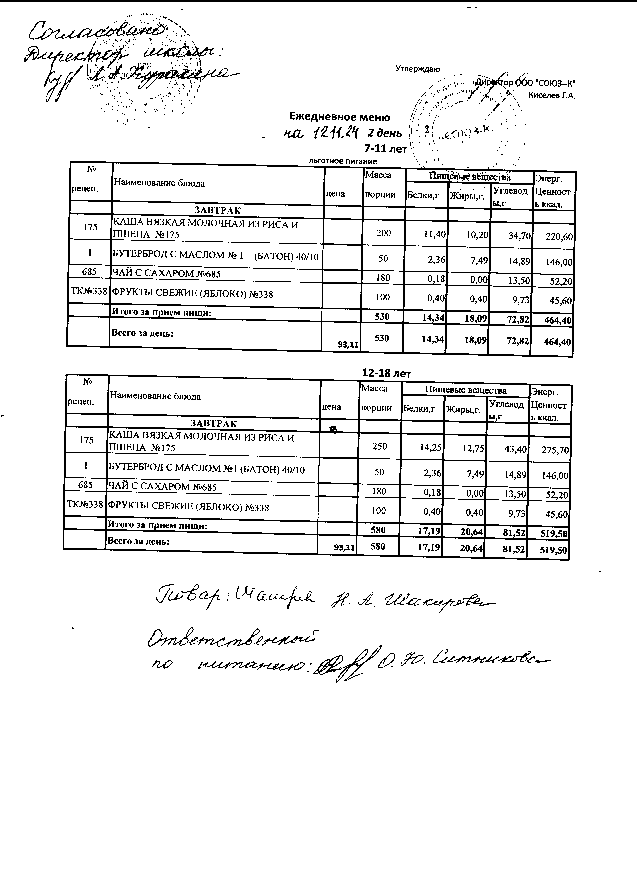 Согласовано
Директор школы:
Л.А. Куракина
Утверждаю
Директор ООО "СОЮЗ–К"
Киселев Г.А.
Ежедневное меню
на 12.11.24 2 день
7-11 лет
льготное питание
№ рецеп. Наименование блюда цена Масса порции Пищевые вещества Энерг. Ценность ккал.
Белки,г Жиры,г. Углеводы,г
ЗАВТРАК
175 КАША ВЯЗКАЯ МОЛОЧНАЯ ИЗ РИСА И ПШЕНА №175 200 11,40 10,20 34,70 220,60
1 БУТЕРБРОД С МАСЛОМ № 1 (БАТОН) 40/10 50 2,36 7,49 14,89 146,00
685 ЧАЙ С САХАРОМ №685 180 0,18 0,00 13,50 52,20
ТК№338 ФРУКТЫ СВЕЖИЕ (ЯБЛОКО) №338 100 0,40 0,40 9,73 45,60
Итого за прием пищи: 530 14,34 18,09 72,82 464,40
Всего за день: 93,11 530 14,34 18,09 72,82 464,40
12-18 лет
№ рецеп. Наименование блюда цена Масса порции Пищевые вещества Энерг. Ценность ккал.
Белки,г Жиры,г. Углеводы,г
ЗАВТРАК
175 КАША ВЯЗКАЯ МОЛОЧНАЯ ИЗ РИСА И ПШЕНА №175 250 14,25 12,75 43,40 275,70
1 БУТЕРБРОД С МАСЛОМ №1 (БАТОН) 40/10 50 2,36 7,49 14,89 146,00
685 ЧАЙ С САХАРОМ №685 180 0,18 0,00 13,50 52,20
ТК№338 ФРУКТЫ СВЕЖИЕ (ЯБЛОКО) №338 100 0,40 0,40 9,73 45,60
Итого за прием пищи: 580 17,19 20,64 81,52 519,50
Всего за день: 93,11 580 17,19 20,64 81,52 519,50
Повар: Н. А. Шакирова
Ответственной
по питанию: О. Ю. Ситникова